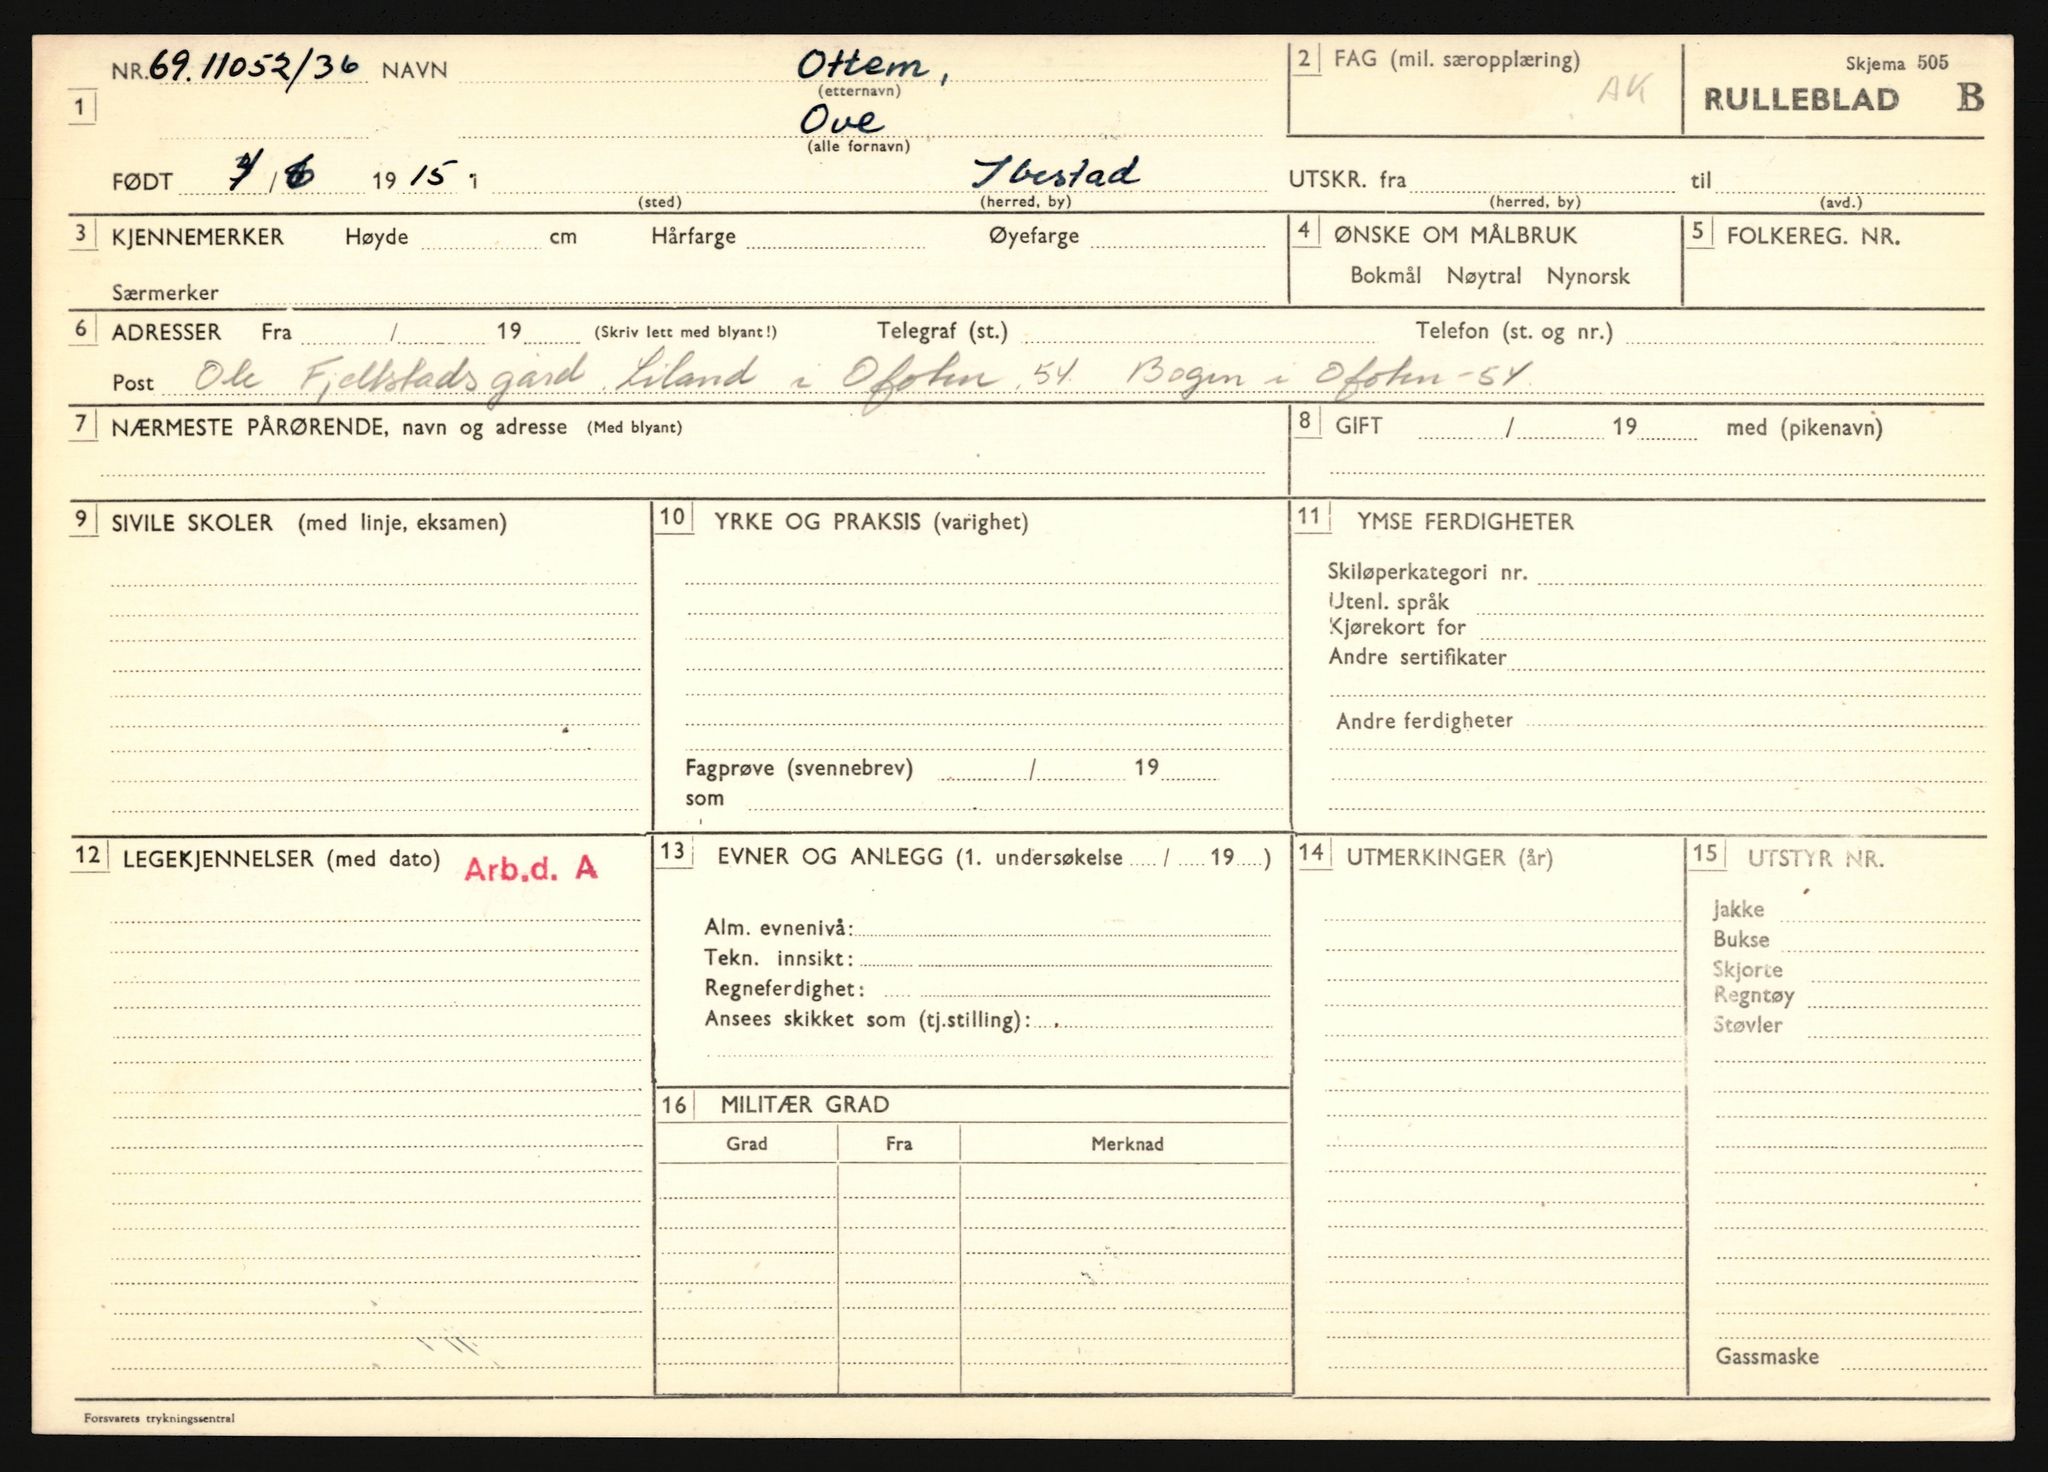 NR. 69.11052/36 NAVN Ottem,
(etternavn)
1
Ove
(alle fornavn)
2 FAG (mil. særopplæring)
AK
Skjema 505
RULLEBLAD B
FØDT / 1915 i Ibestad
(sted) (herred, by)
UTSKR. fra til
(herred, by) (avd.)
3 KJENNEMERKER Høyde cm Hårfarge Øyefarge
Særmerker
4 ØNSKE OM MÅLBRUK
Bokmål Nøytral Nynorsk
5 FOLKEREG. NR.
6 ADRESSER Fra / 19 (Skriv lett med blyant!) Telegraf (st.) Telefon (st. og nr.)
Post Ole Fjellstadsgård, Liland i Ofoten, 54. Bogen i Ofoten-54.
7 NÆRMESTE PÅRØRENDE, navn og adresse (Med blyant)
8 GIFT / 19 med (pikenavn)
9 SIVILE SKOLER (med linje, eksamen)
10 YRKE OG PRAKSIS (varighet)
Fagprøve (svennebrev) / 19
som
11 YMSE FERDIGHETER
Skiløperkategori nr.
Utenl. språk
Kjørekort for
Andre sertifikater
Andre ferdigheter
12 LEGEKJENNELSER (med dato) Arb.d. A
13 EVNER OG ANLEGG (1. undersøkelse / 19 )
Alm. evnenivå:
Tekn. innsikt:
Regneferdighet:
Ansees skikket som (tj.stilling):
14 UTMERKINGER (år)
15 UTSTYR NR.
Jakke
Bukse
Skjorte
Regntøy
Støvler
Gassmaske
16 MILITÆR GRAD
Grad Fra Merknad
Forsvarets trykningssentral